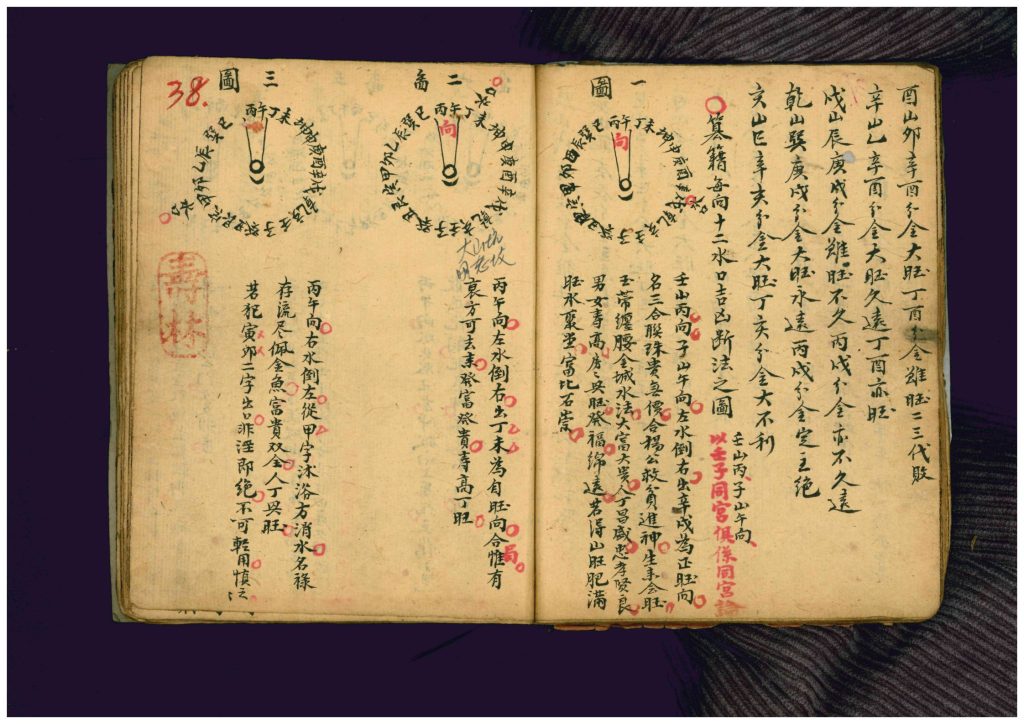 酉山卯辛酉分金大旺丁酉分金雖旺二三代敗
辛山乙辛酉分金大旺久遠丁酉亦旺
戌山辰庚戌分金雖旺不久丙戌分金亦不久遠
乾山巽庚戌分金大旺永遠丙戌分金定主絶
亥山巳辛亥分金大旺丁亥分金大不利
篡籍每向十二水口吉凶斷法之圖
壬山丙、子山午向、
以壬子同宮俱係同宮論
一圖
丙午丁未坤申庚酉辛戌乾亥壬子癸丑艮寅甲卯乙辰巽巳
向
壬山丙向子山午向左水倒右出辛戌為正旺向
名三合聯珠貴無價合楊公救貧進神生來会旺
玉帶纏腰金城水法大富大貴人丁昌盛忠孝賢良
男女壽高房々興旺發福綿遠若得山旺肥滿
旺水聚堂富比石崇
二圖
丙午丁未坤申庚酉辛戌乾亥壬子癸丑艮寅甲卯乙辰巽巳
向
丙午向左水倒右出丁未為自旺向合惟有局
衰方可去來發富發貴壽高丁旺
38.
三圖
丙午丁未坤申庚酉辛戌乾亥壬子癸丑艮寅甲卯乙辰巽巳
丙午向右水倒左從甲字沐浴方消水名祿
存流尽佩金魚富貴双全人丁興旺
若犯寅卯二字出非淫即絶不可輕用慎云
壽林